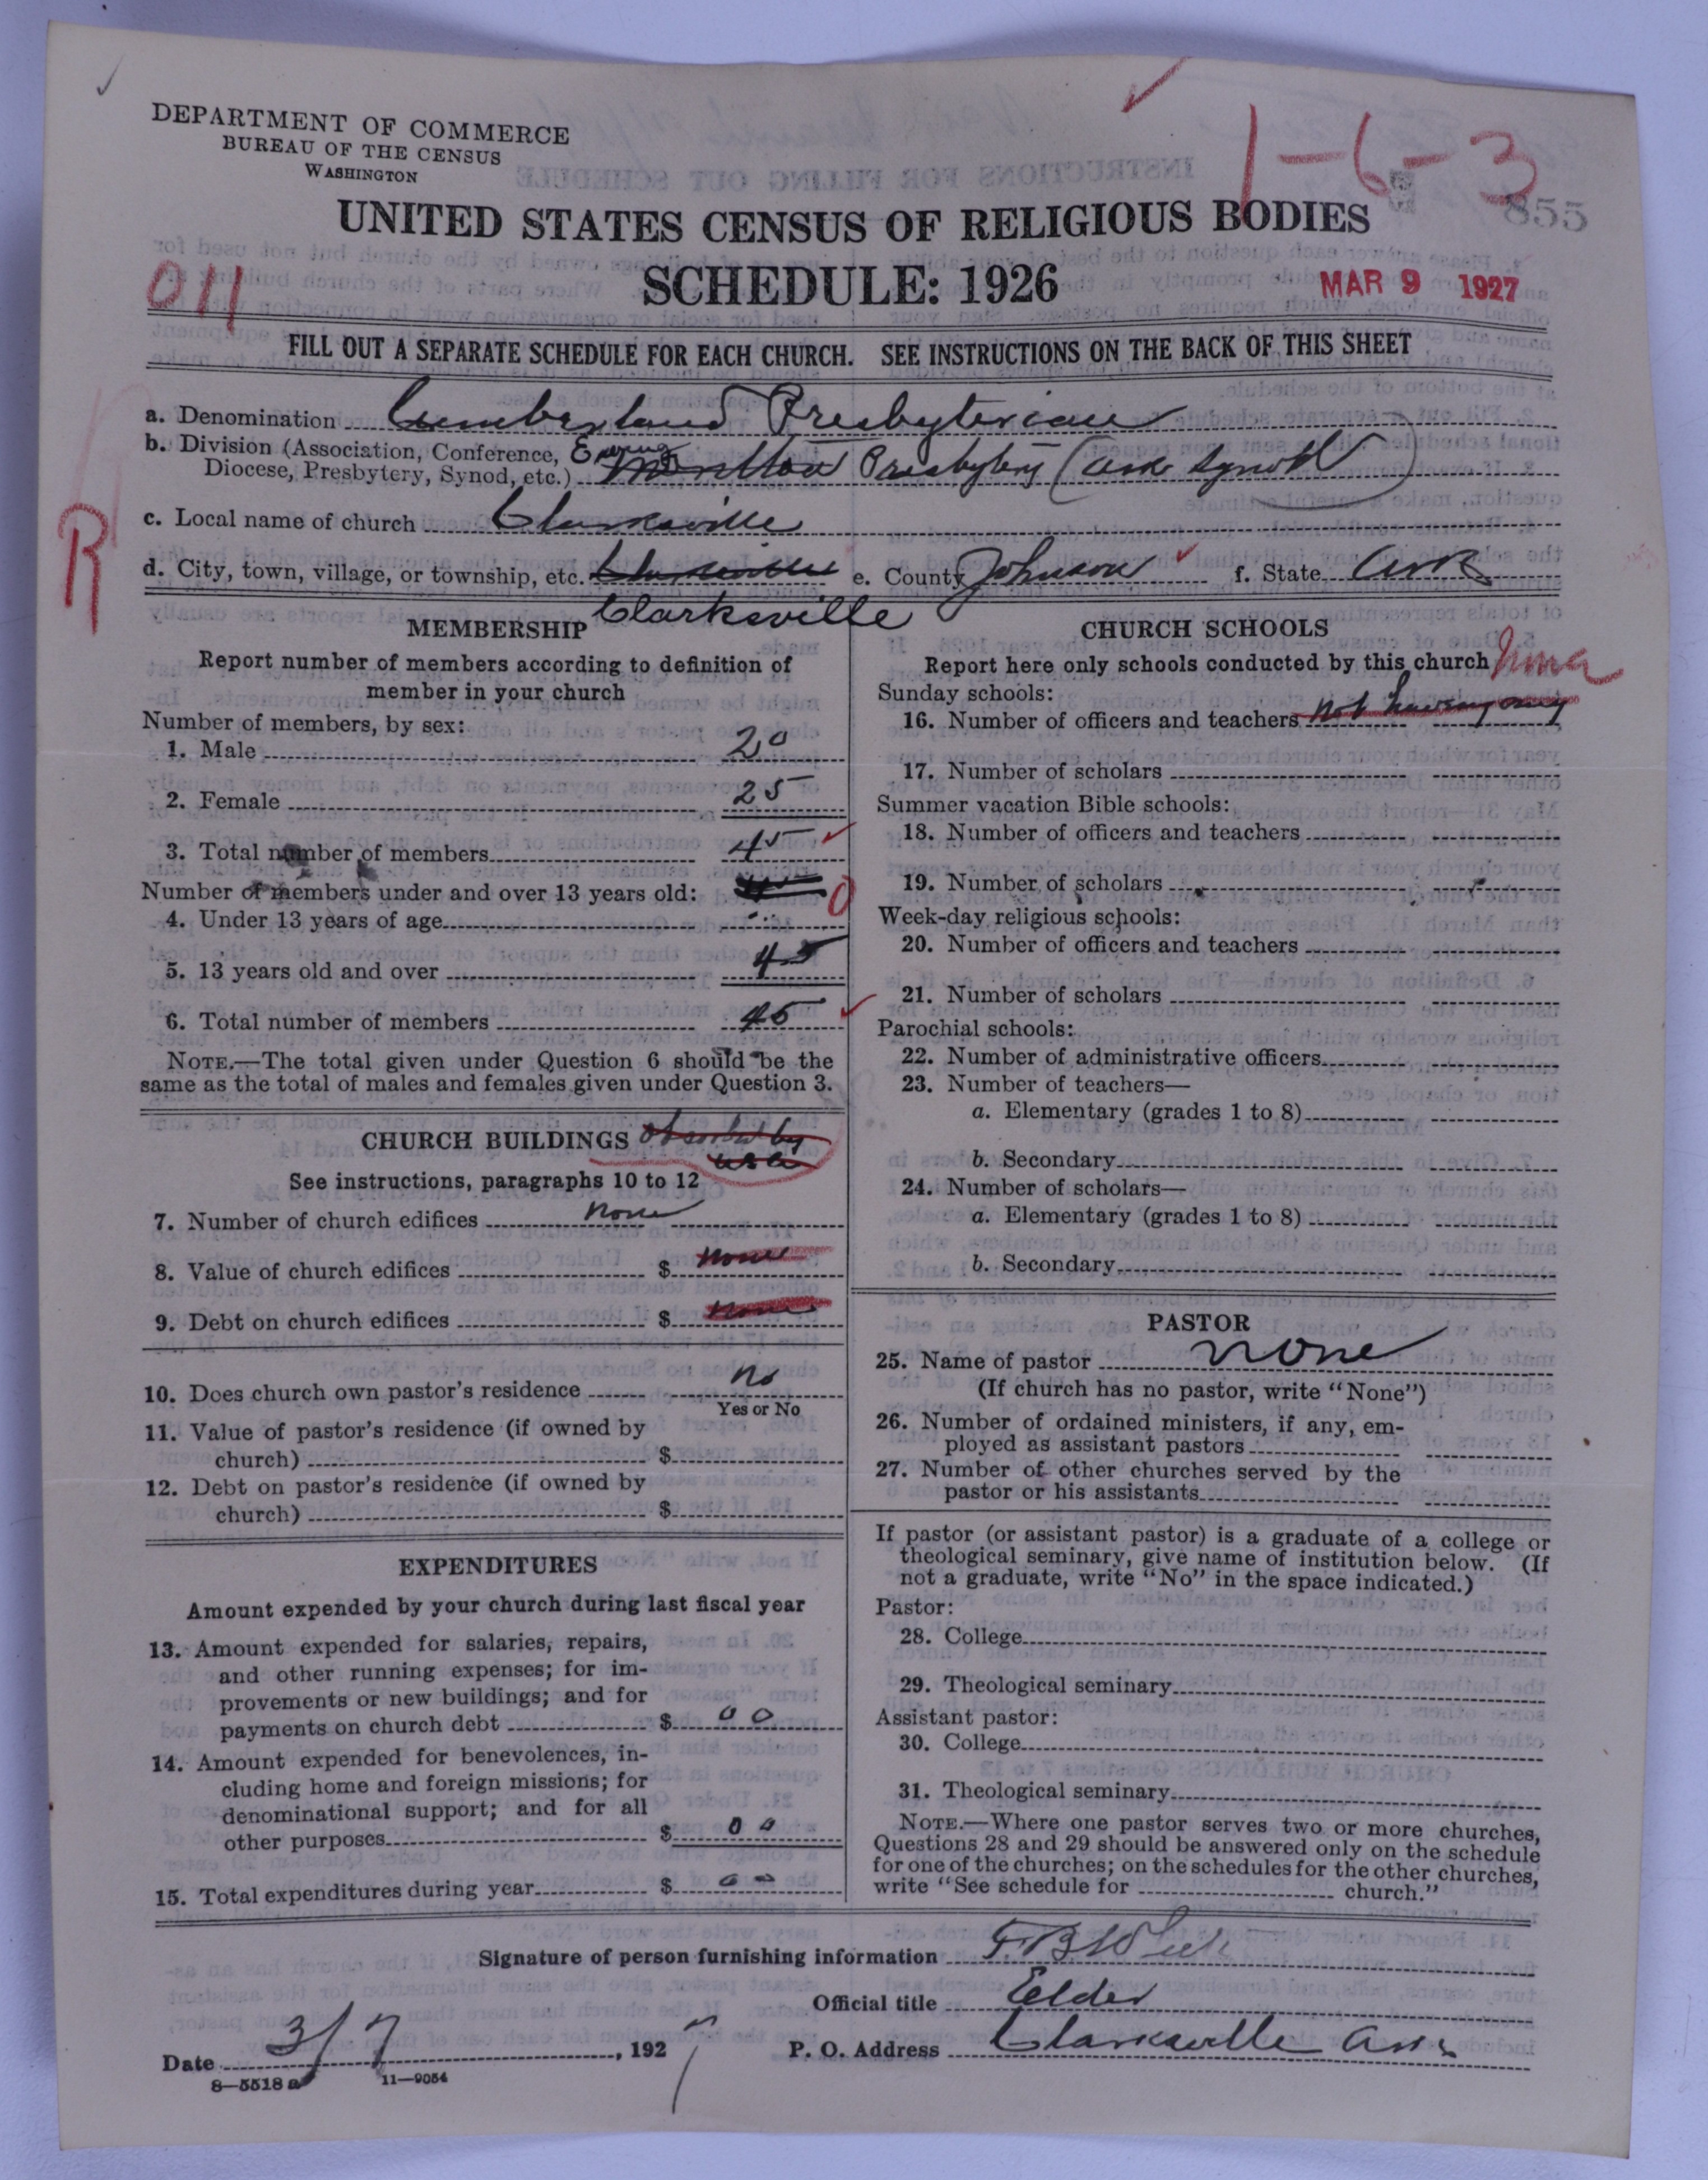 DEPARTMENT OF COMMERCE
BUREAU OF THE CENSUS
WASHINGTON
1-6-3
855
UNITED STATES CENSUS OF RELIGIOUS BODIES
011
SCHEDULE: 1926
MAR 9 1927
FILL OUT A SEPARATE SCHEDULE FOR EACH CHURCH. SEE INSTRUCTIONS ON THE BACK OF THIS SHEET
a. Denomination Cumberland Presbyterian
b. Division (Association, Conference, Ewing
Diocese, Presbytery, Synod, etc.) Morrilton Presbytery (Ark Synod)
R
c. Local name of church Clarksville
d. City, town, village, or township, etc. Clarksville e. County Johnson f. State Ark
Clarksville
MEMBERSHIP
Report number of members according to definition of
member in your church
Number of members, by sex:
1. Male 20
2. Female 25
3. Total number of members 45
Number of members under and over 13 years old:
4. Under 13 years of age 0
5. 13 years old and over 45
6. Total number of members 45
NOTE.—The total given under Question 6 should be the
same as the total of males and females given under Question 3.
CHURCH BUILDINGS absorbed by
USA
See instructions, paragraphs 10 to 12
7. Number of church edifices none
8. Value of church edifices $ none
9. Debt on church edifices $ none
10. Does church own pastor's residence No
Yes or No
11. Value of pastor's residence (if owned by
church) $
12. Debt on pastor's residence (if owned by
church) $
EXPENDITURES
Amount expended by your church during last fiscal year
13. Amount expended for salaries, repairs,
and other running expenses; for im-
provements or new buildings; and for
payments on church debt $ 00
14. Amount expended for benevolences, in-
cluding home and foreign missions; for
denominational support; and for all
other purposes $ 00
15. Total expenditures during year $ 00
CHURCH SCHOOLS
Report here only schools conducted by this church
Sunday schools:
16. Number of officers and teachers not having any
17. Number of scholars
Summer vacation Bible schools:
18. Number of officers and teachers
19. Number of scholars
Week-day religious schools:
20. Number of officers and teachers
21. Number of scholars
Parochial schools:
22. Number of administrative officers
23. Number of teachers—
a. Elementary (grades 1 to 8)
b. Secondary
24. Number of scholars—
a. Elementary (grades 1 to 8)
b. Secondary
PASTOR
25. Name of pastor none
(If church has no pastor, write "None")
26. Number of ordained ministers, if any, em-
ployed as assistant pastors
27. Number of other churches served by the
pastor or his assistants
If pastor (or assistant pastor) is a graduate of a college or
theological seminary, give name of institution below. (If
not a graduate, write "No" in the space indicated.)
Pastor:
28. College
29. Theological seminary
Assistant pastor:
30. College
31. Theological seminary
NOTE.—Where one pastor serves two or more churches,
Questions 28 and 29 should be answered only on the schedule
for one of the churches; on the schedules for the other churches,
write "See schedule for church."
Signature of person furnishing information
Official title Elder
Date 3/7, 1927 P. O. Address Clarksville Ark
8—5518 a 11—9054